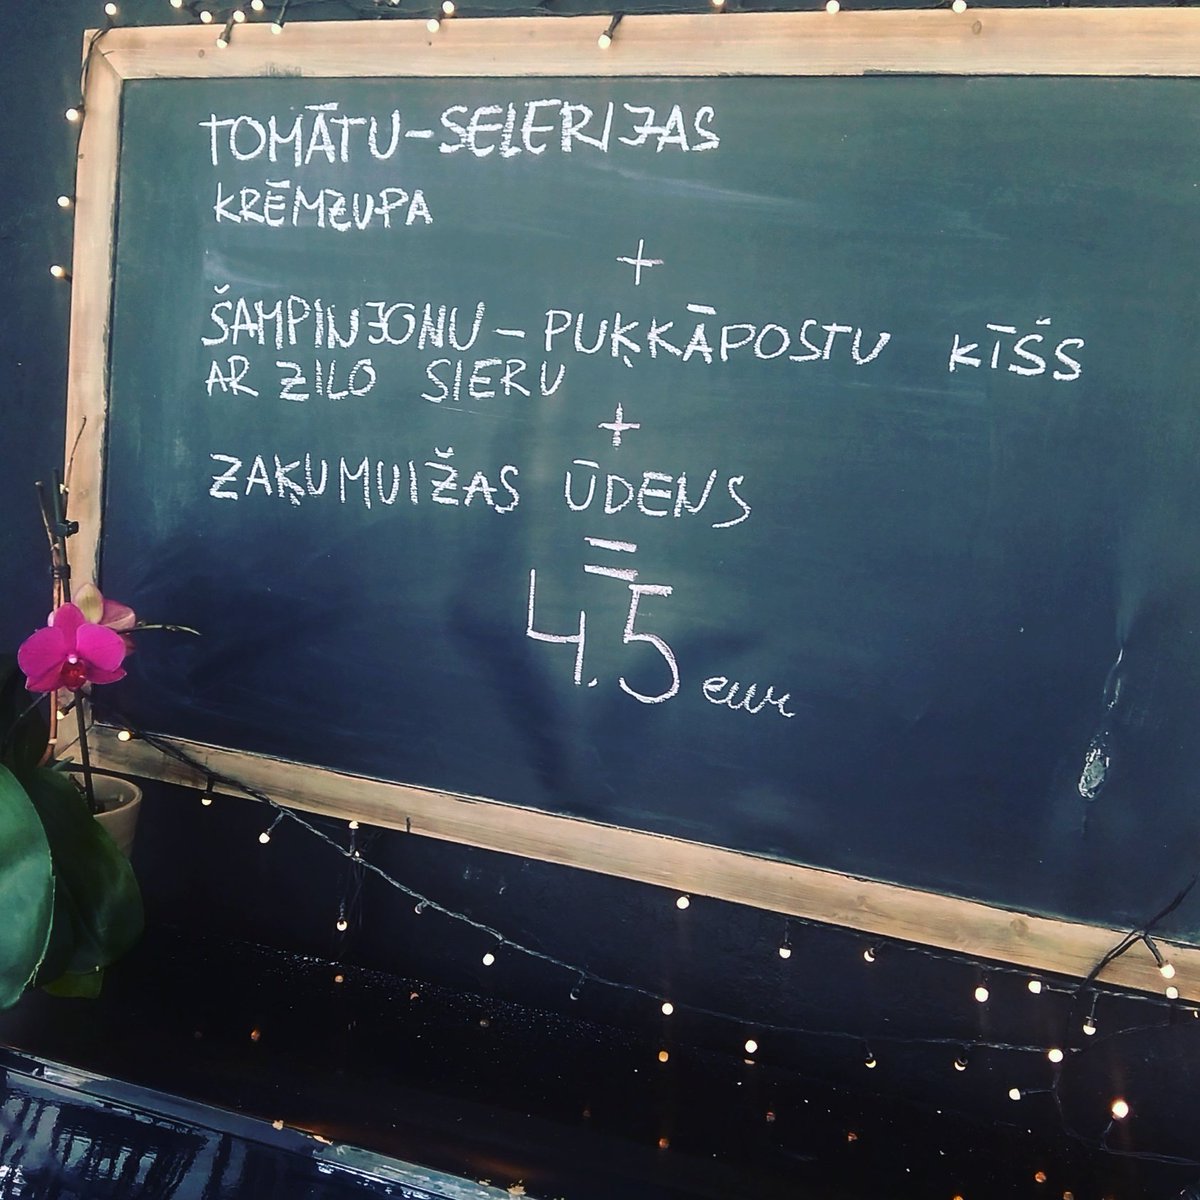 TOMĀTU-SEĻERIJAS
KRĒMZUPA
+
ŠAMPINJONU-PUĶKĀPOSTU KĪŠS
AR ZILO SIERU
+
ZAĶUMUIŽAS ŪDENS
=
4.5 eur